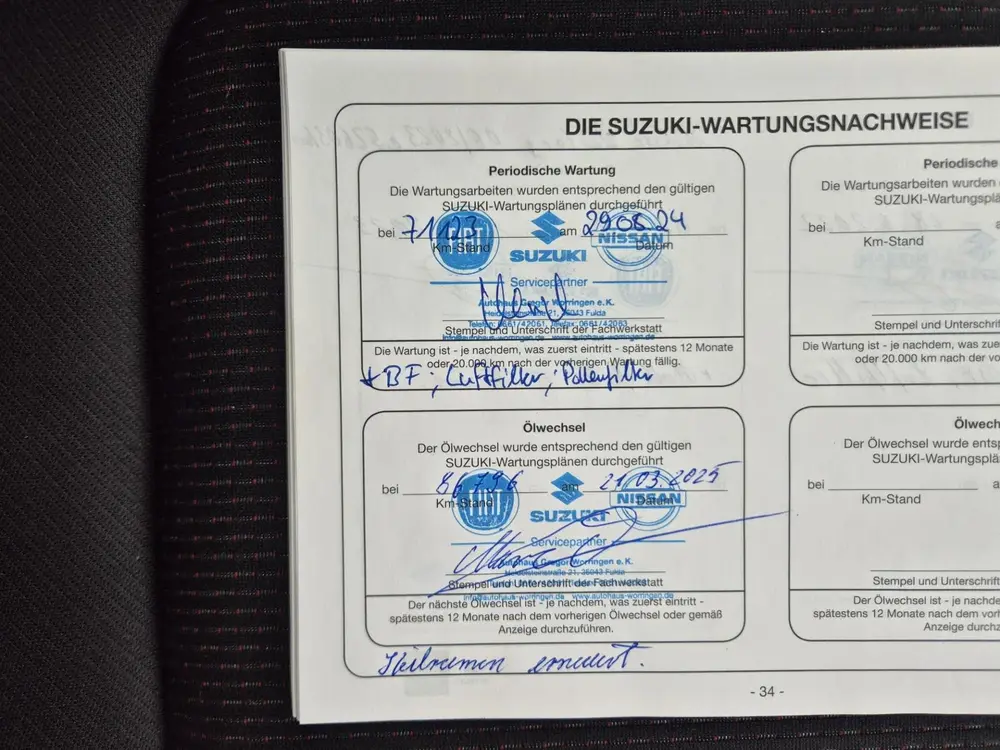 DIE SUZUKI-WARTUNGSNACHWEISE
Periodische Wartung
Die Wartungsarbeiten wurden entsprechend den gültigen
SUZUKI-Wartungsplänen durchgeführt
bei 71123 am 29.08.24
Km-Stand Datum
FIAT SUZUKI NISSAN
Servicepartner
Autohaus Gregor Worringen e. K.
21, 36043 Fulda
Telefon: 0661/42061, Telefax: 0661/42063
Stempel und Unterschrift der Fachwerkstatt
info@autohaus-worringen.de www.autohaus-worringen.de
Die Wartung ist - je nachdem, was zuerst eintritt - spätestens 12 Monate
oder 20.000 km nach der vorherigen Wartung fällig.
+ BF, Luftfilter, Pollenfilter
Ölwechsel
Der Ölwechsel wurde entsprechend den gültigen
SUZUKI-Wartungsplänen durchgeführt
bei 86796 am 21.03.2025
Km-Stand Datum
FIAT SUZUKI NISSAN
Servicepartner
Autohaus Gregor Worringen e. K.
21, 36043 Fulda
Stempel und Unterschrift der Fachwerkstatt
info@autohaus-worringen.de www.autohaus-worringen.de
Der nächste Ölwechsel ist - je nachdem, was zuerst eintritt -
spätestens 12 Monate nach dem vorherigen Ölwechsel oder gemäß
Anzeige durchzuführen.
Keilriemen erneuert.
Periodische
Die Wartungsarbeiten wurden
SUZUKI-Wartungsplä
bei
Km-Stand
Stempel und Unterschrift
Die Wartung ist - je nachdem, was zuers
oder 20.000 km nach der vo
Ölwech
Der Ölwechsel wurde entsp
SUZUKI-Wartungsplä
bei
Km-Stand
Stempel und Unterschrift
Der Ölwechsel ist - je nachde
spätestens 12 Monate nach dem vorh
Anzeige durchz
- 34 -